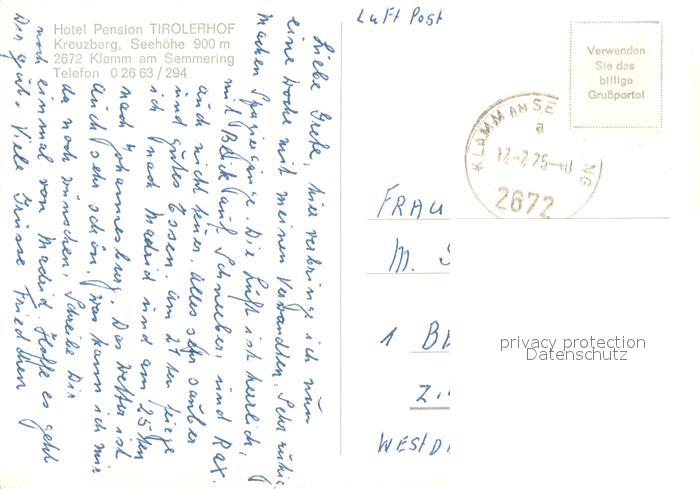 Hotel Pension TIROLERHOF
Kreuzberg, Seehöhe 900 m
2672 Klamm am Semmering
Telefon 0 26 63 / 294
Liebe Grete, hier verbringe ich nun
eine Woche mit meinen Verwandten. Sehr ruhig,
machen Spaziergänge. Die Luft ist herrlich,
mit Blick auf Schneeberg und Rax.
auch nicht teuer. alles sehr sauber
und gutes Essen. am 21ten fliege
ich nach Madrid und am 25ten
nach Johannesburg. Das Wetter ist
auch sehr schön. was kann ich mir
da noch wünschen. Schreibe Dir
noch einmal von Madrid. Hoffe es geht
Dir gut. Viele Grüsse Friedchen
Luft Post
Verwenden
Sie das
billige
Grußporto!
KLAMM AM SE NG
a
2672
FRAU
M. S
1 B
WESTD
privacy protection
Datenschutz